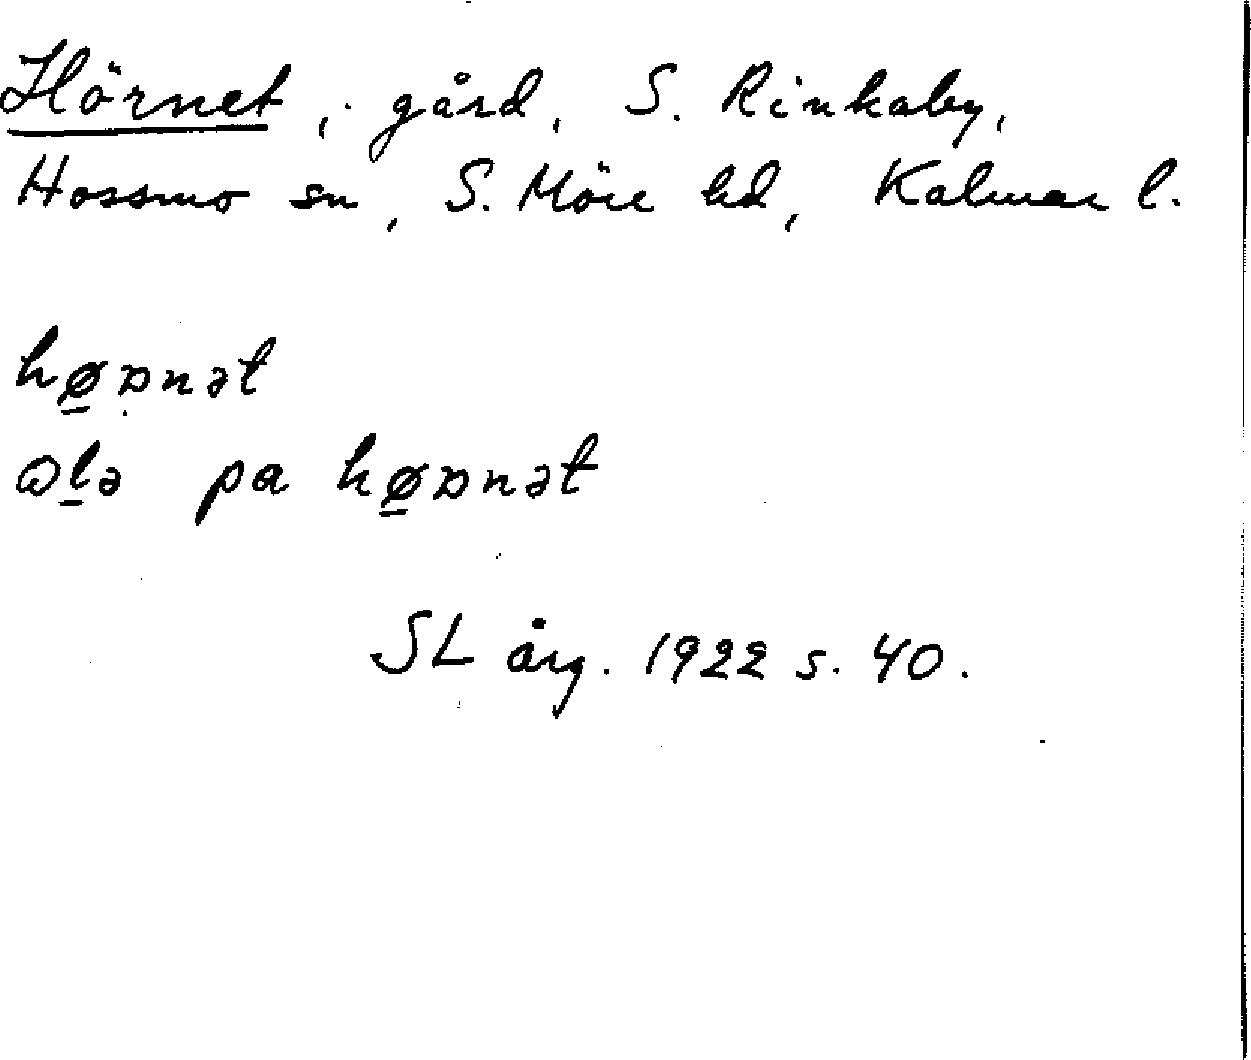 Hörnet, gård, S. Rinkaby,
Hossmo sn, S. Möre hd, Kalmar l.
hø̱ɒnət
ɷl̠ə pa hø̱ɒnət
SL årg. 1922 s. 40.